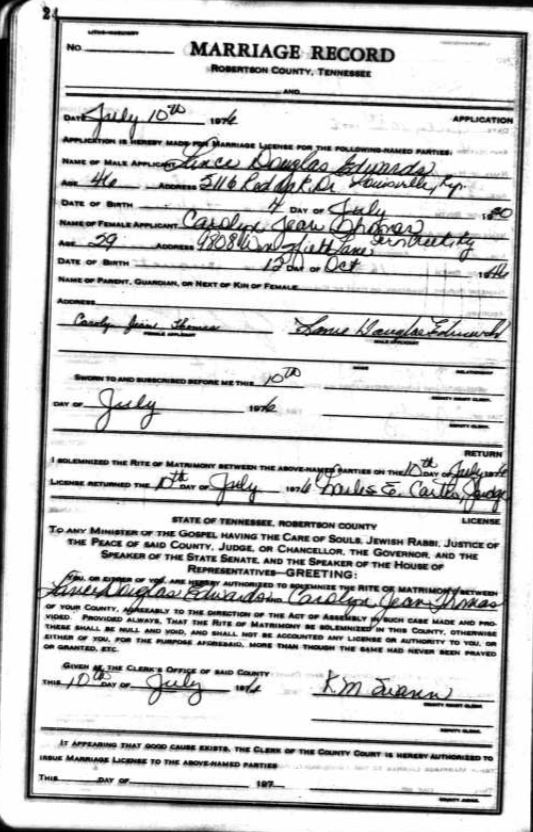 24
No.
MARRIAGE RECORD
ROBERTSON COUNTY, TENNESSEE
AND
DATE July 10th 1976 APPLICATION
APPLICATION IS HEREBY MADE FOR MARRIAGE LICENSE FOR THE FOLLOWING-NAMED PARTIES:
NAME OF MALE APPLICANT Lance Douglas Edwards
AGE 46 ADDRESS 5116 Red Oak Dr Louisville, Ky.
DATE OF BIRTH 4 DAY OF July 1930
NAME OF FEMALE APPLICANT Carolyn Jean Thomas
AGE 29 ADDRESS 9808 Lane Ky
DATE OF BIRTH 12 DAY OF Oct 1946
NAME OF PARENT, GUARDIAN, OR NEXT OF KIN OF FEMALE
ADDRESS
Carolyn Jean Thomas Lance Douglas Edwards
FEMALE APPLICANT MALE APPLICANT
NAME RELATIONSHIP
SWORN TO AND SUBSCRIBED BEFORE ME THIS 10th
COUNTY COURT CLERK
DAY OF July 1976
DEPUTY CLERK
RETURN
I SOLEMNIZED THE RITE OF MATRIMONY BETWEEN THE ABOVE-NAMED PARTIES ON THE 10th DAY OF July 1976
LICENSE RETURNED THE 10th DAY OF July 1976 Charles E. Carter, Judge
LICENSE
STATE OF TENNESSEE, ROBERTSON COUNTY
TO ANY MINISTER OF THE GOSPEL HAVING THE CARE OF SOULS, JEWISH RABBI, JUSTICE OF
THE PEACE OF SAID COUNTY, JUDGE, OR CHANCELLOR, THE GOVERNOR, AND THE
SPEAKER OF THE STATE SENATE, AND THE SPEAKER OF THE HOUSE OF
REPRESENTATIVES—GREETING:
YOU, OR EITHER OF YOU, ARE HEREBY AUTHORIZED TO SOLEMNIZE THE RITE OF MATRIMONY BETWEEN
Lance Douglas Edwards AND Carolyn Jean Thomas
OF YOUR COUNTY, AGREEABLY TO THE DIRECTION OF THE ACT OF ASSEMBLY IN SUCH CASE MADE AND PRO-
VIDED. PROVIDED ALWAYS, THAT THE RITE OF MATRIMONY BE SOLEMNIZED IN THIS COUNTY, OTHERWISE
THESE SHALL BE NULL AND VOID, AND SHALL NOT BE ACCOUNTED ANY LICENSE OR AUTHORITY TO YOU, OR
EITHER OF YOU, FOR THE PURPOSE AFORESAID, MORE THAN THOUGH THE SAME HAD NEVER BEEN PRAYED
OR GRANTED, ETC.
GIVEN AT THE CLERK'S OFFICE OF SAID COUNTY
THIS 10th DAY OF July 1976 K M Swann
COUNTY COURT CLERK
DEPUTY CLERK
IT APPEARING THAT GOOD CAUSE EXISTS, THE CLERK OF THE COUNTY COURT IS HEREBY AUTHORIZED TO
ISSUE MARRIAGE LICENSE TO THE ABOVE-NAMED PARTIES
THIS DAY OF 197
COUNTY JUDGE